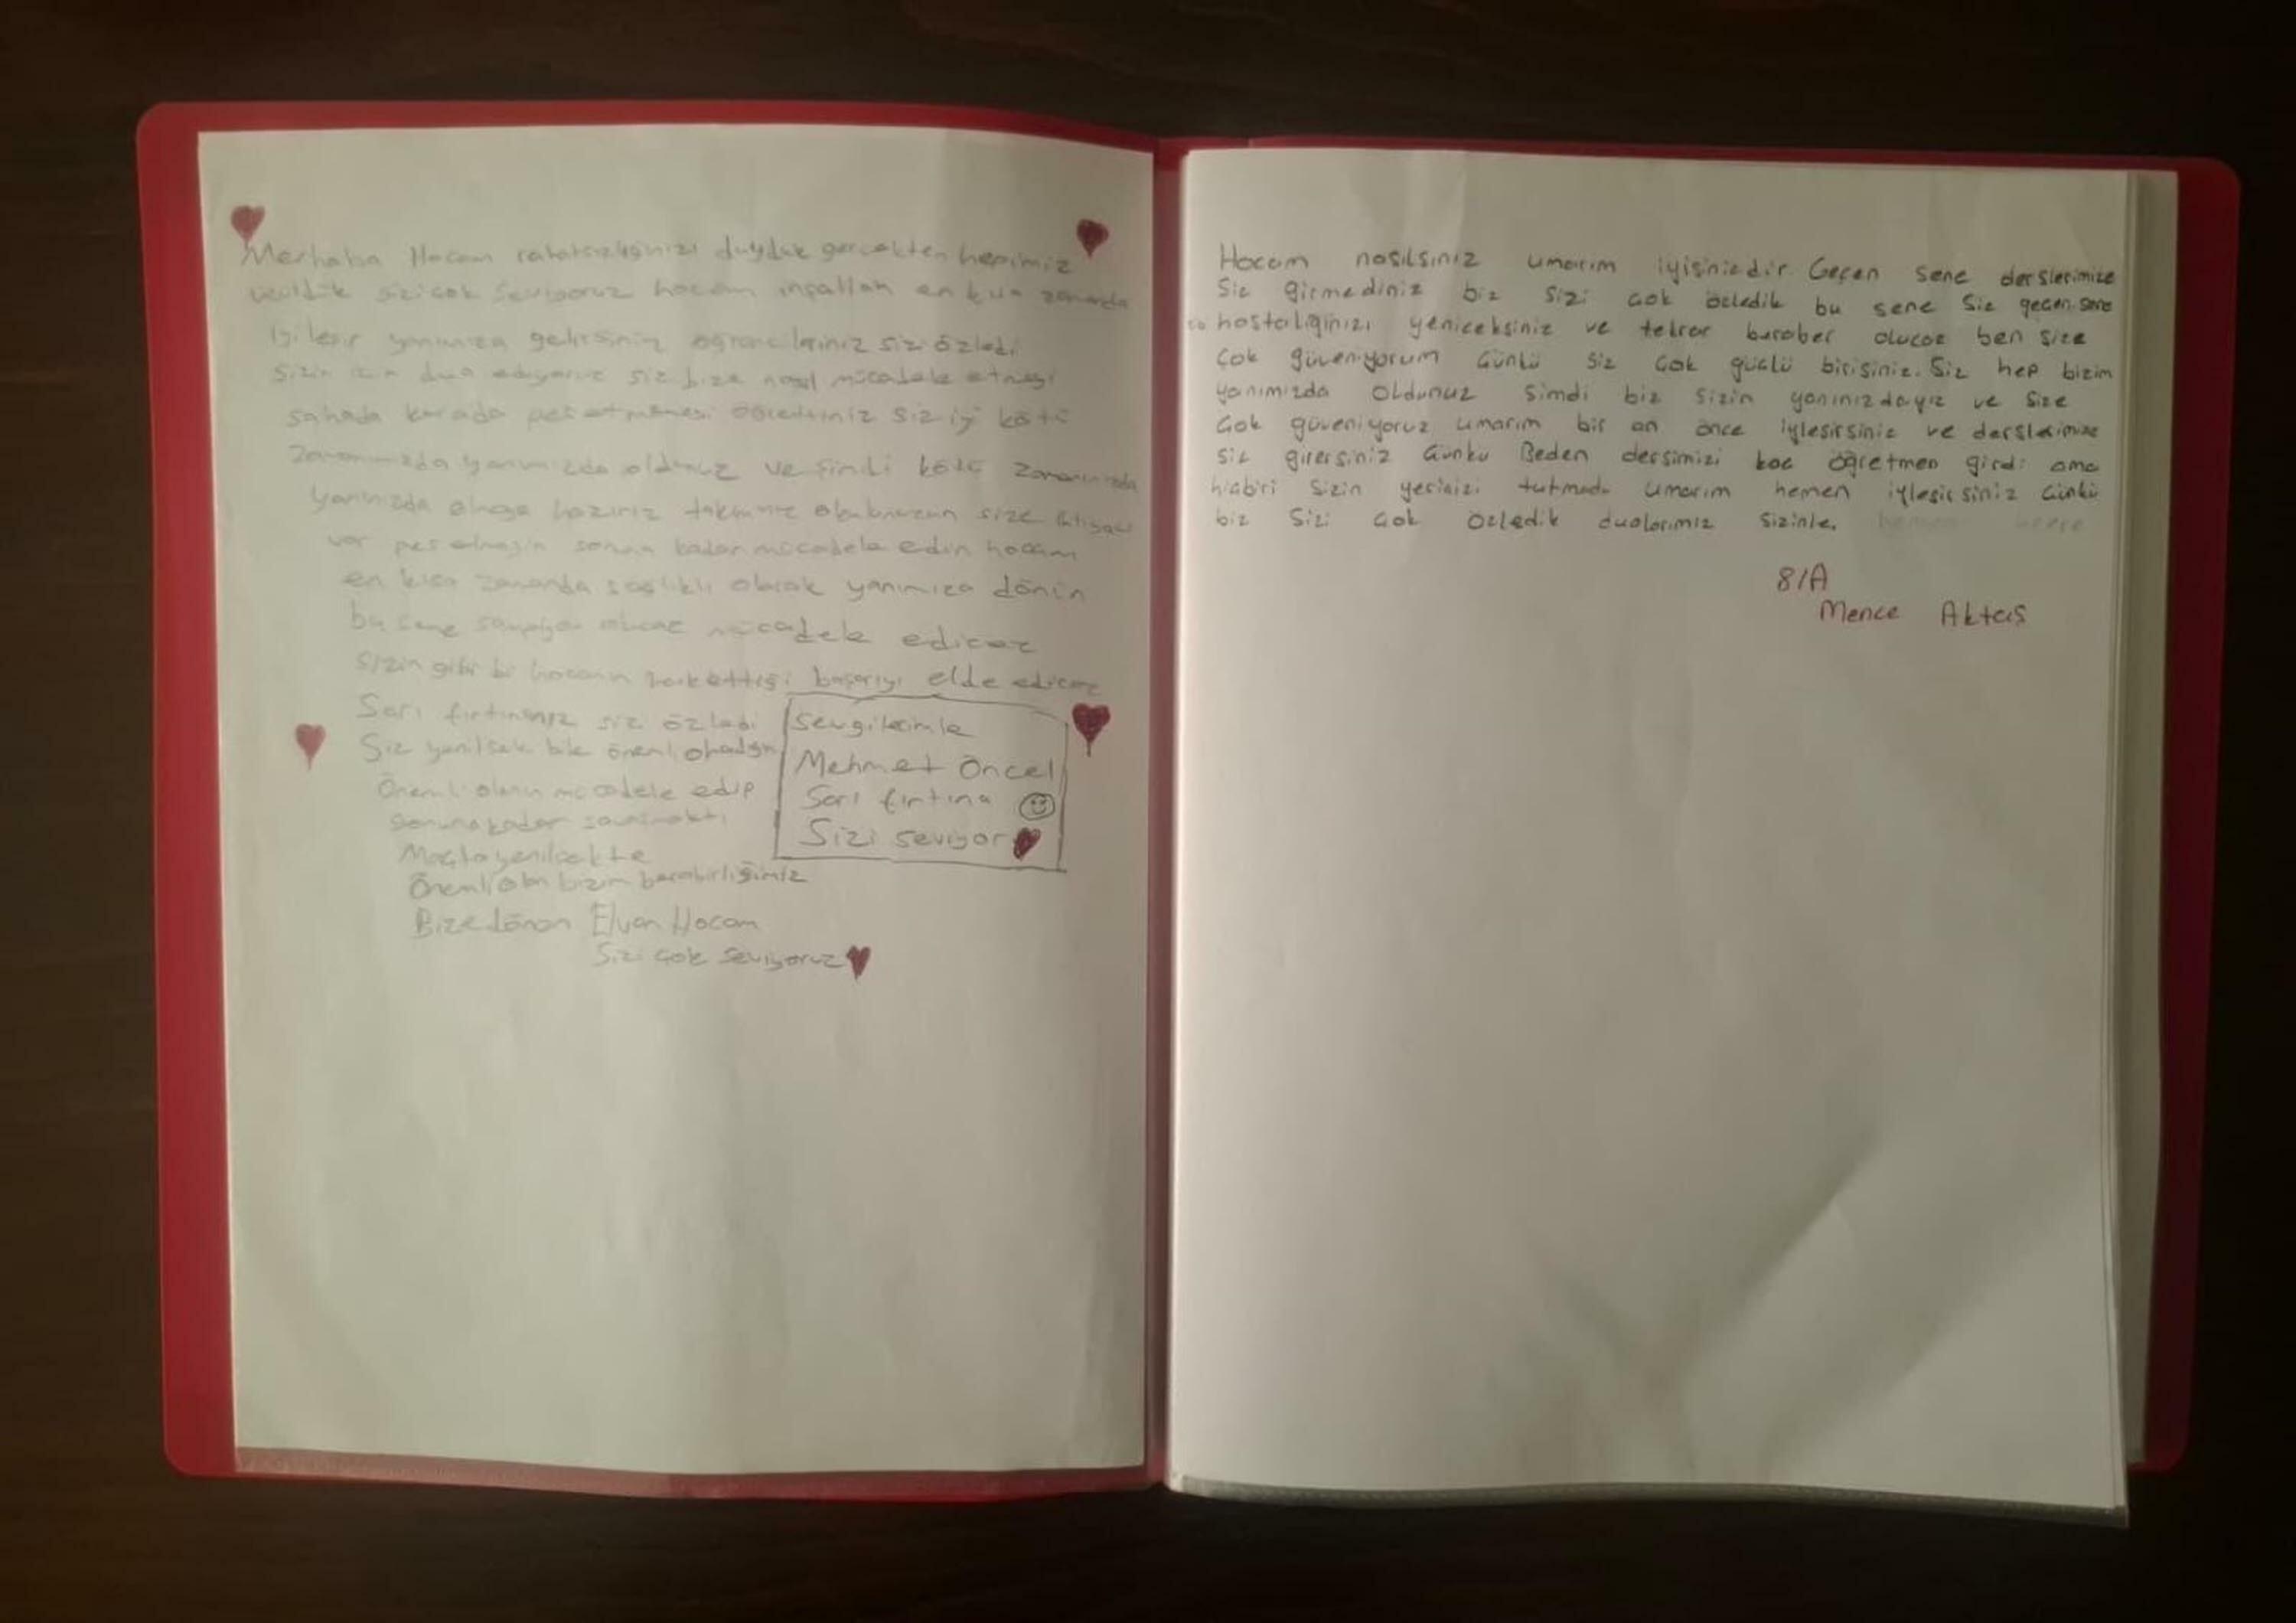 Merhaba Hocam rahatsızlığınızı duyduk gerçekten hepimiz
üzüldük sizi çok seviyoruz hocam inşallah en kısa zamanda
iyileşir yanımıza gelirsiniz öğrencileriniz sizi özledi
sizin için dua ediyoruz siz bize nasıl mücadele etmeyi
sahada pes etmemesi öğrettiniz siz iyi kötü
zamanımızda yanımızda oldunuz ve şimdi kötü zamanınızda
yanınızda olmaya hazırız size ihtiyacı
var pes etmeyin sonuna kadar mücadele edin hocam
en kısa zamanda sağlıklı olarak yanımıza dönün
bu sene mücadele edicez
sizin gibi bir hocanın hakettiği başarıyı elde edicez
Sarı fırtınanız sizi özledi
Siz yenilsek bile önemli olmadığını
Önemli olanın mücadele edip
sonuna kadar savaşmaktı
Maçta yenilsekte
Önemli olan bizim beraberliğimiz
Bize dönün Elvan Hocam
Sizi çok seviyoruz
Sevgilerimle
Mehmet Öncel
Sarı fırtına
Sizi seviyor
Hocam nasılsınız umarım iyisinizdir. Geçen sene derslerimize
Siz girmediniz biz sizi çok özledik bu sene Siz geçen sene
hastalığınızı yeniceksiniz ve tekrar buraber olucaz ben size
çok güveniyorum Çünkü siz çok güçlü birisiniz. Siz hep bizim
yanımızda oldunuz Simdi biz sizin yanınızdayız ve Size
çok güveniyoruz umarım bir an önce iyleşirsiniz ve derslerimize
siz girersiniz Çünkü Beden dersimizi koç öğretmen girdi ama
hiçbiri sizin yerinizi tutmadı umarım hemen iyleşirsiniz Çünkü
biz sizi çok özledik dualarımız sizinle.
8/A
Mence Aktaş